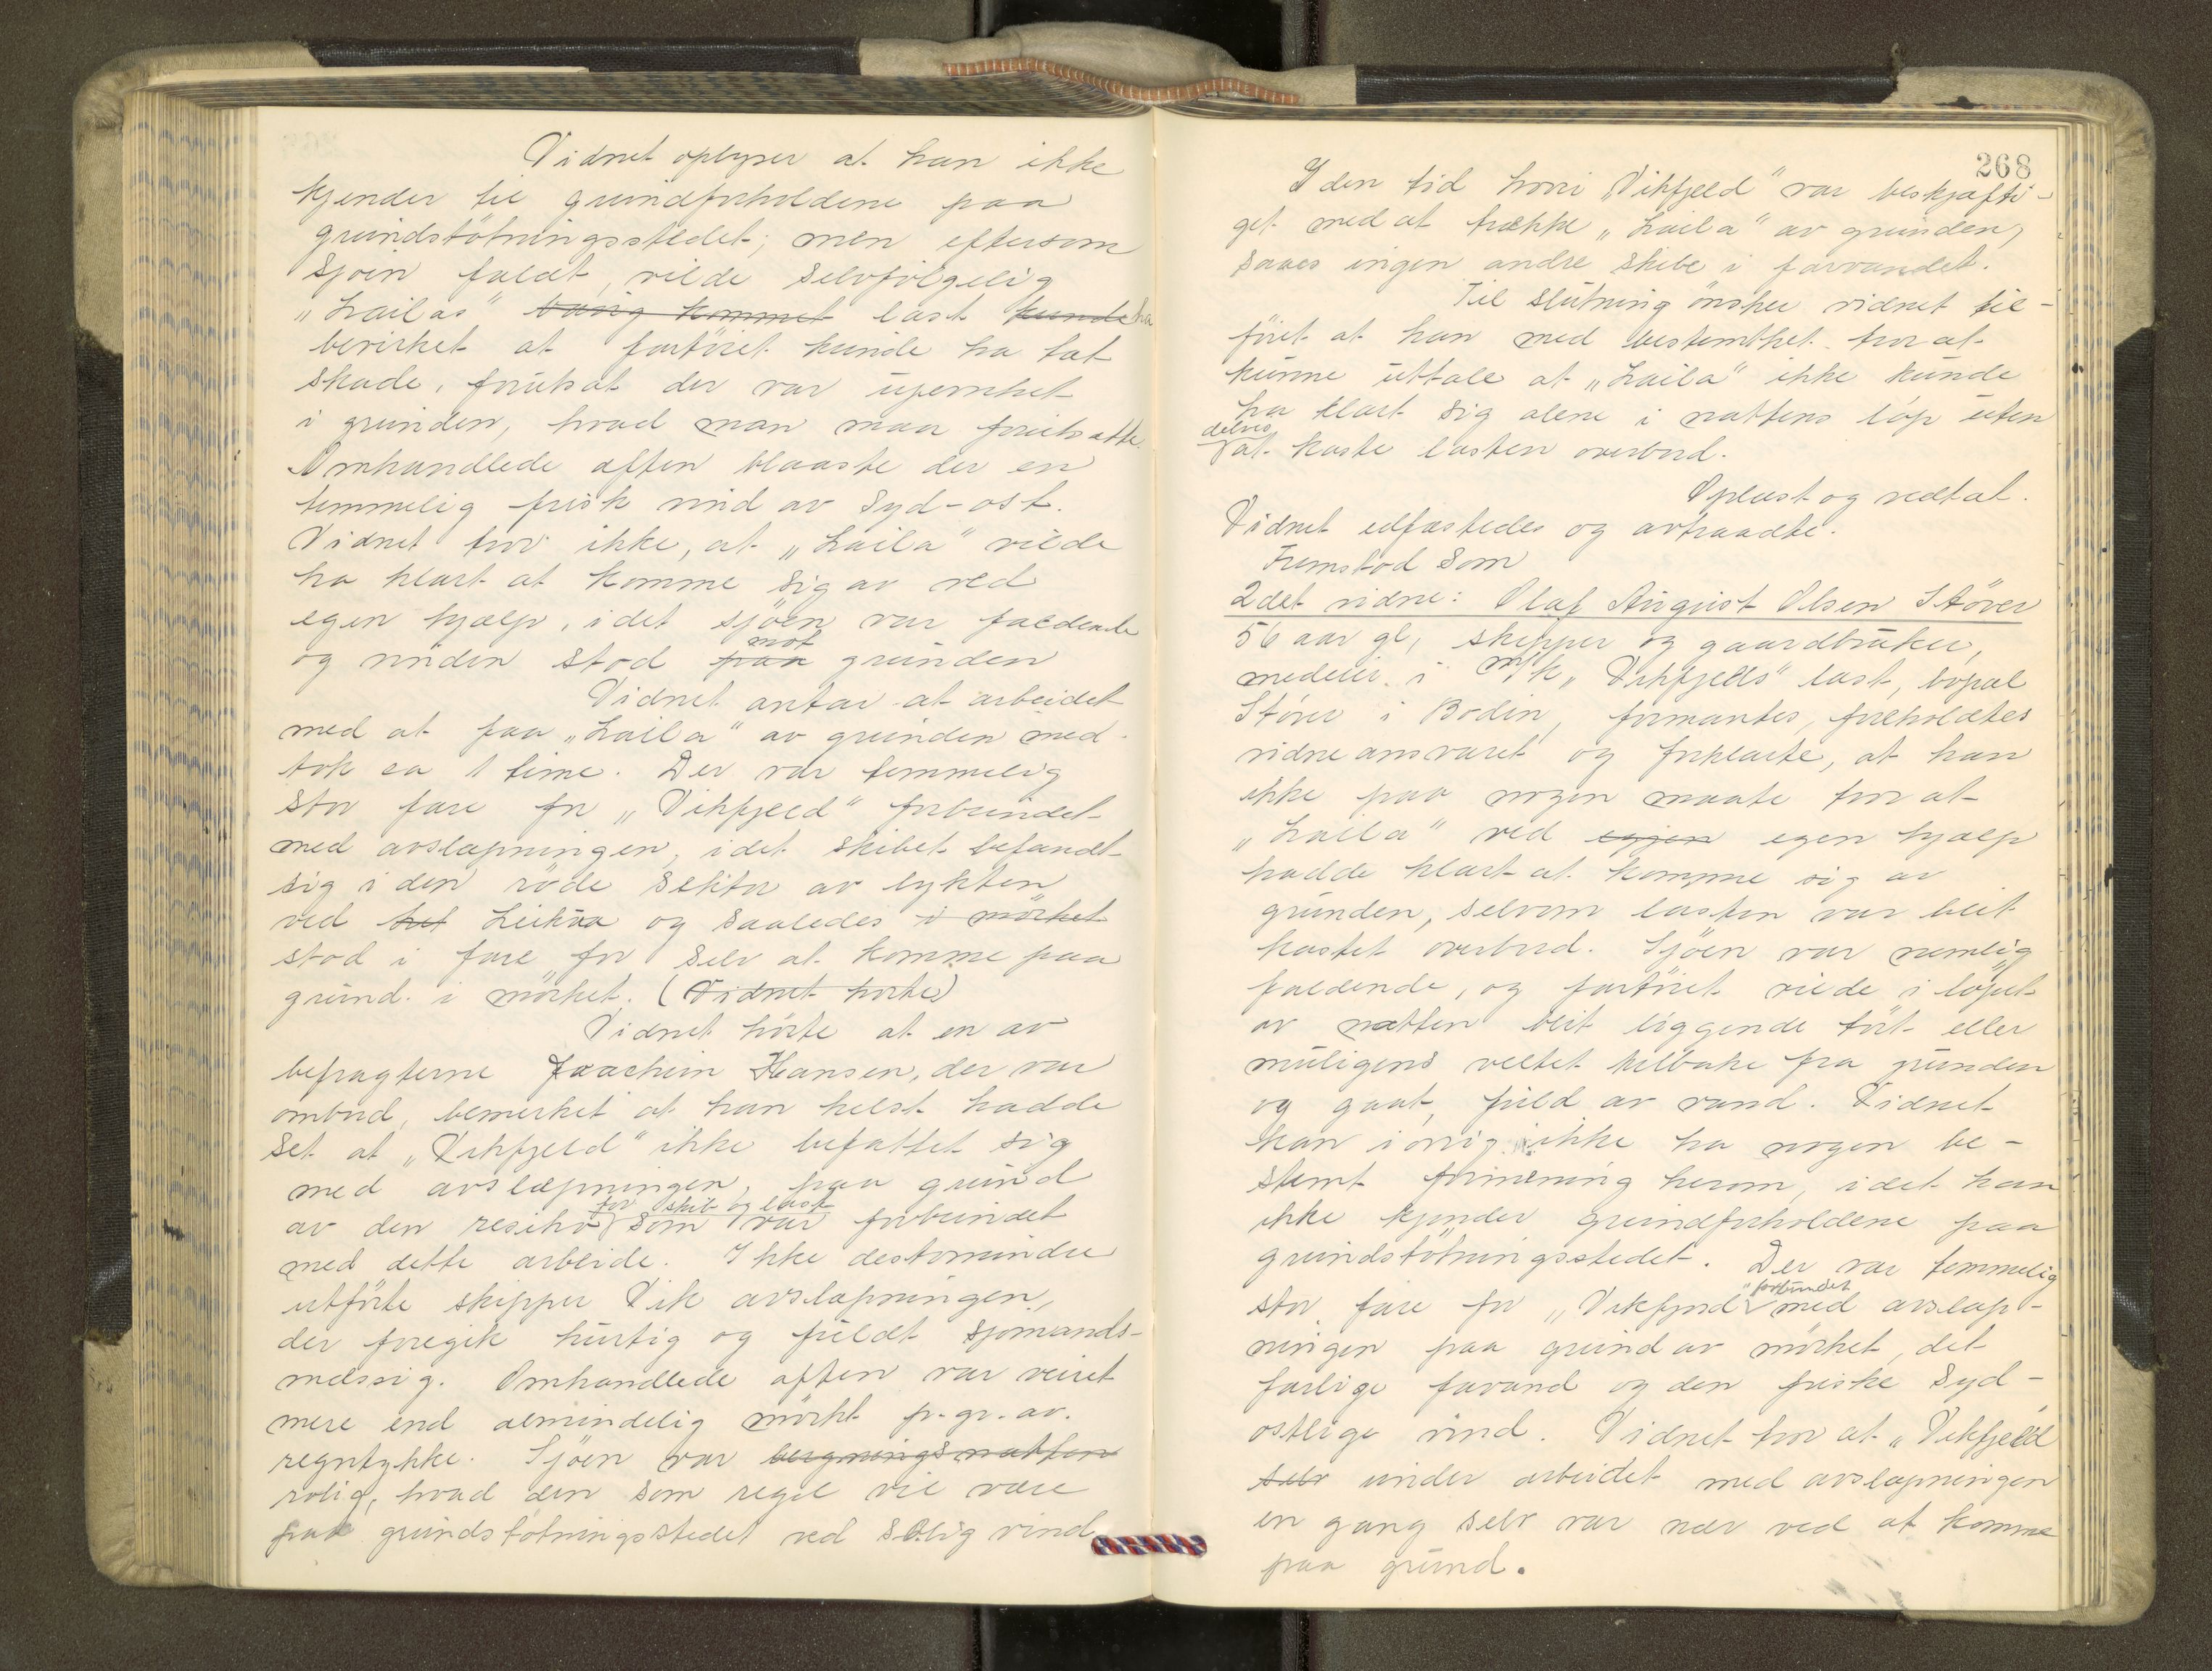 Vidnet oplyser at han ikke
kjender til grundforholdene paa
grundstötningsstedet; men eftersom
sjøen faldt, vilde selvfölgelig
„Lailas" last ha
bevirket at fartöiet kunde ha tat
skade, forutsat der var ujevnhet
i grunden, hvad man maa forutsætte.
Omhandlede aften blaaste der en
temmelig frisk vind av Syd-ost.
Vidnet tror ikke, at „Laila" vilde
ha klart at komme sig av ved
egen hjælp, idet sjöen var faldende
og vinden stod paa mot grunden
Vidnet antar at arbeidet
med at faa „Laila" av grunden med-
tok ca 1 time. Der var temmelig
stor fare for „Vikfjeld" forbundet
med avslæpningen, idet skibet befandt
sig i den röde sektor av lykten
ved het og saaledes i mörket
stod i fare for selv at komme paa
grund i mörket. (Vidnet hörte)
Vidnet hörte at en av
befragterne Joachim Hansen, der var
ombord, bemerket at han helst hadde
set at „Vikfjeld" ikke befattet sig
med avslæpningen, paa grund
av den resiko for skib og last som var forbundet
med dette arbeide. Ikke destomindre
utförte skipper Vik avslæpningen,
der foregik hurtig og fuldt sjomands-
mæssig. Omhandlede aften var veiret
mere end almindelig mörkt p.gr.av.
regntykke. Sjöen var bergningsnatten
rolig, hvad den som regel vil være
paa grundstötningsstedet ved S.O.lig vind.
268
I den tid hvori „Vikfjeld" var beskjæfti-
get med at trække „Laila" av grunden,
saaes ingen andre skibe i farvandet.
Til slutning önsker vidnet til-
föiet at han med bestemthet tror at
kunne uttale at „Laila" ikke kunde
ha klart sig alene i nattens löp uten
delvis at kaste lasten overbord.
Oplæst og vedtat.
Vidnet edfæstedes og avtraadte.
Fremstod som
2det vidne: Olaf August Olsen Støver
56 aar gl, skipper og gaardbruker,
medeier i M/k „Vikfjelds" last, bopæl
Støver i Bodin, formantes, foreholdtes
vidneansvaret og forklarte, at han
ikke paa nogen maate tror at
„Laila" ved egen hjælp
hadde klart at komme sig av
grunden, selvom lasten var blit
kastet overbord. Sjöen var nemlig
faldende, og fartöiet vilde i löpet
av natten blit liggende tört eller
muligens veltet tilbake fra grunden
og gaat fuld av vand. Vidnet
kan iövrig ikke ha nogen be-
stemt formening herom, idet han
ikke kjender grundforholdene paa
grundstötningsstedet. Der var temmelig
stor fare for „Vikfjord" forbundet med avslæp-
ningen paa grund av mörket, det
farlige farvand og den friske Syd-
ostlige vind. Vidnet tror at „Vikfjeld
selv under arbeidet med avslæpningen
en gang selv var nær ved at komme
paa grund.